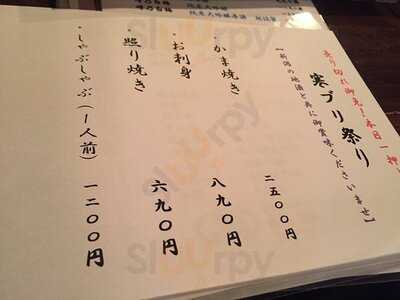 売り切れ御免!本日一押
寒ブリ祭り
【新潟の地酒と共に御賞味くださいませ】
・かま焼き 二五〇〇円
・お刺身 八九〇円
・照り焼き 六九〇円
・しゃぶしゃぶ(1人前) 一二〇〇円
sluurpy